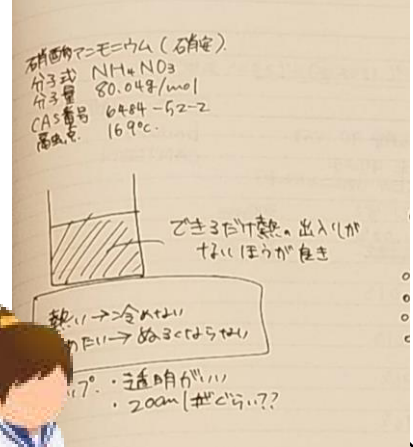 硝酸アンモニウム(硝安)
分子式 NH4NO3
分子量 80.04g/mol
CAS番号 6484-52-2
融点 169℃
できるだけ熱の出入りが
ないほうが良き
熱い→冷めない
めたい→ぬるくならない
プ・透明がいい
・200mlぐらい??